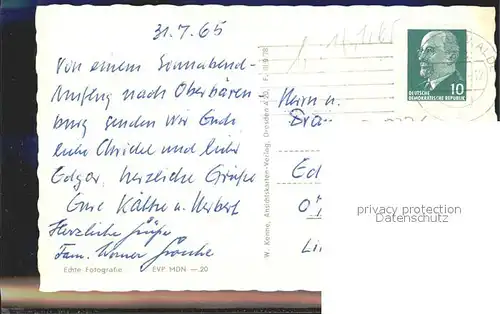 31.7.65
Von einem Sonnabend-
Ausflug nach Oberbären
burg senden wir Euch
liebe Christel und lieber
Edgar, herzliche Grüße
Eure Käthe u. Herbert
Herzliche Grüße
Fam. Werner
Echte Fotografie EVP MDN —.20
W. Kenne, Ansichtskarten-Verlag, Dresden A 20
DEUTSCHE
DEMOKRATISCHE REPUBLIK
10
Herrn u.
Ed
privacy protection
Datenschutz